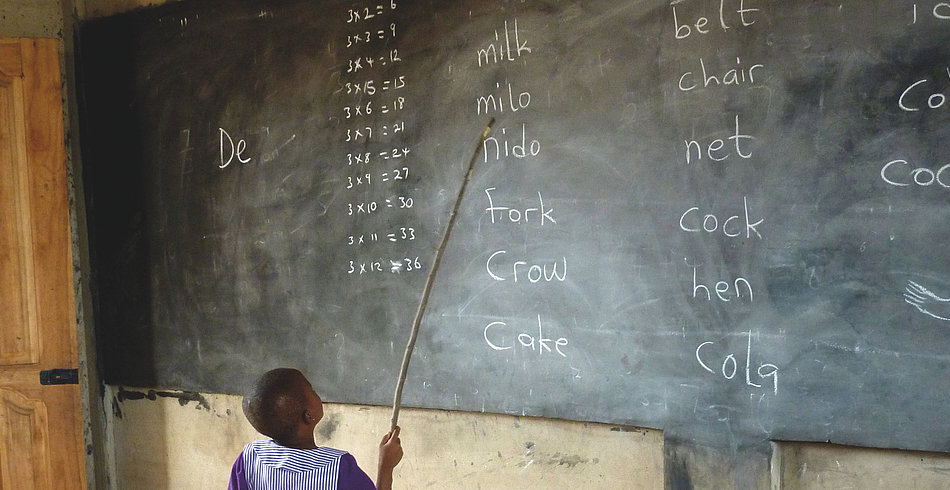 De
3 x 2 = 6
3 x 3 = 9
3 x 4 = 12
3 x 15 = 15
3 x 6 = 18
3 x 7 = 21
3 x 8 = 24
3 x 9 = 27
3 x 10 = 30
3 x 11 = 33
3 x 12 = 36
milk
milo
nido
Fork
Crow
Cake
belt
chair
net
cock
hen
Cola